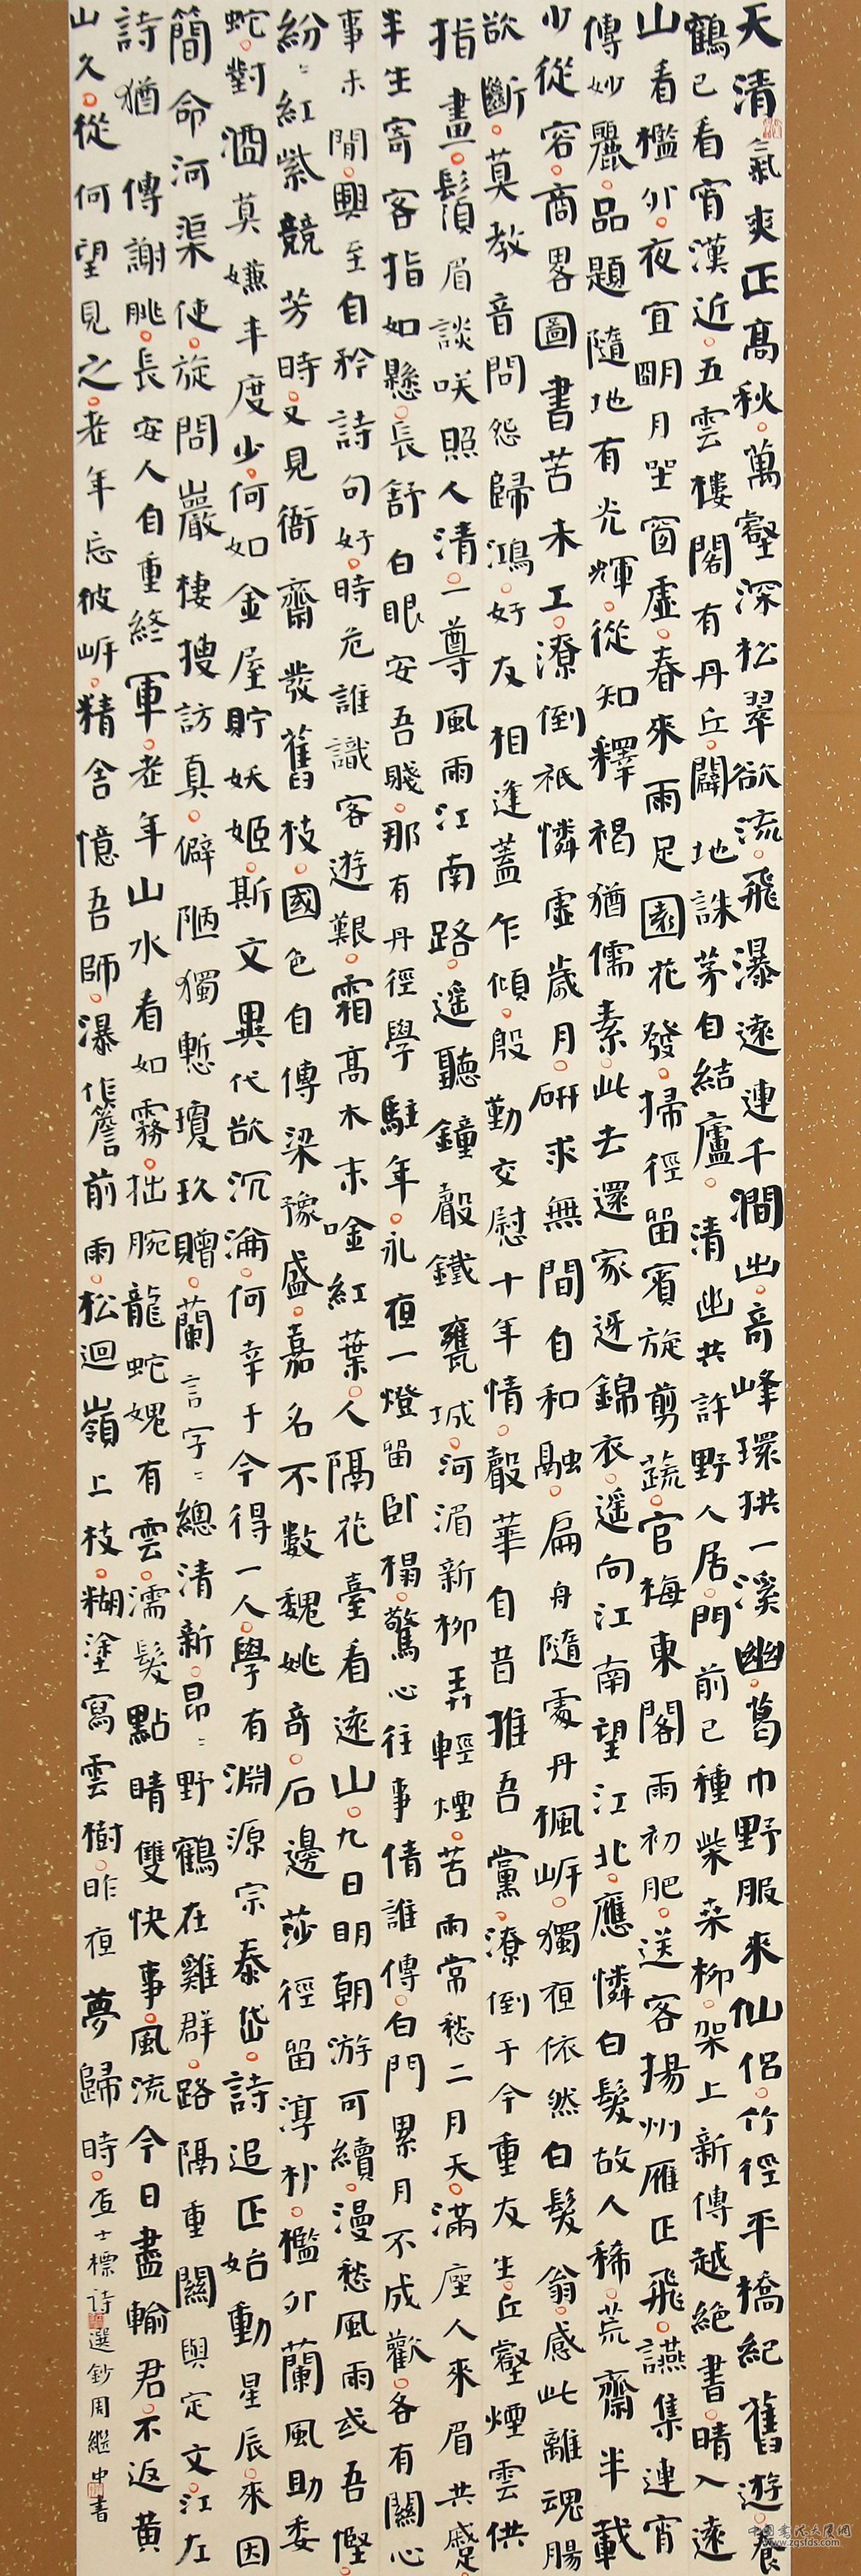 天清氣爽正高秋萬壑深松翠欲流飛瀑遠連千澗出奇峰環拱一溪幽葛巾野服來仙侶竹徑平橋紀舊遊養
鶴已看宵漢近五雲樓閣有丹丘闢地誅茅自結廬清幽共許野人居門前已種柴桑柳架上新傳越絕書晴入遠
山看檻外夜宜明月坐窗虛春來雨足園花發掃徑留賓旋剪蔬官梅東閣雨初肥送客揚州雁正飛讌集連宵
傳妙麗品題隨地有光輝從知釋褐猶儒素此去還家迓錦衣遥向江南望江北應憐白髮故人稀荒齋半載
少從容商畧圖書苦未工潦倒祇憐虛歲月研求無間自和融扁舟隨處丹楓岸獨夜依然白髮翁感此離魂腸
欲斷莫教音問怨歸鴻好友相逢蓋乍傾殷勤交慰十年情聲華自昔推吾黨潦倒于今重友生丘壑煙雲供
指畫鬚眉談笑照人清一尊風雨江南路遥聽鐘聲鐵甕城河湄新柳弄輕煙苦雨常愁二月天滿座人來眉共蹙
半生寄客指如懸長舒白眼安吾賤那有丹徑學駐年永夜一燈留卧榻驚心往事倩誰傳白門累月不成歡各有關心
事未閒興至自矜詩句好時危誰識客遊艱霜高木末唫紅葉人隔花臺看遠山九日明朝游可續漫愁風雨或吾慳
紛紛紅紫競芳時又見衙齋發舊枝國色自傳梁豫盛嘉名不數魏姚奇石邊莎徑留淳朴檻外蘭風助委
蛇對酒莫嫌丰度少何如金屋貯妖姬斯文異代欲沉淪何幸于今得一人學有淵源宗泰岱詩追正始動星辰來因
簡命河渠使旋問巖棲搜訪真僻陋獨慙瓊玖贈蘭言字字總清新昂昂野鶴在雞群路隔重關與定文江左
詩猶傳謝朓長安人自重終軍老年山水看如霧拙腕龍蛇媿有雲濡髮點睛雙快事風流今日盡輸君不返黄
山久從何望見之老年忘彼岸精舍憶吾師瀑作簷前雨松迴嶺上枝糊塗寫雲樹昨夜夢歸時查士標詩選鈔周繼中書
中国书法文展网
www.zgsfds.com